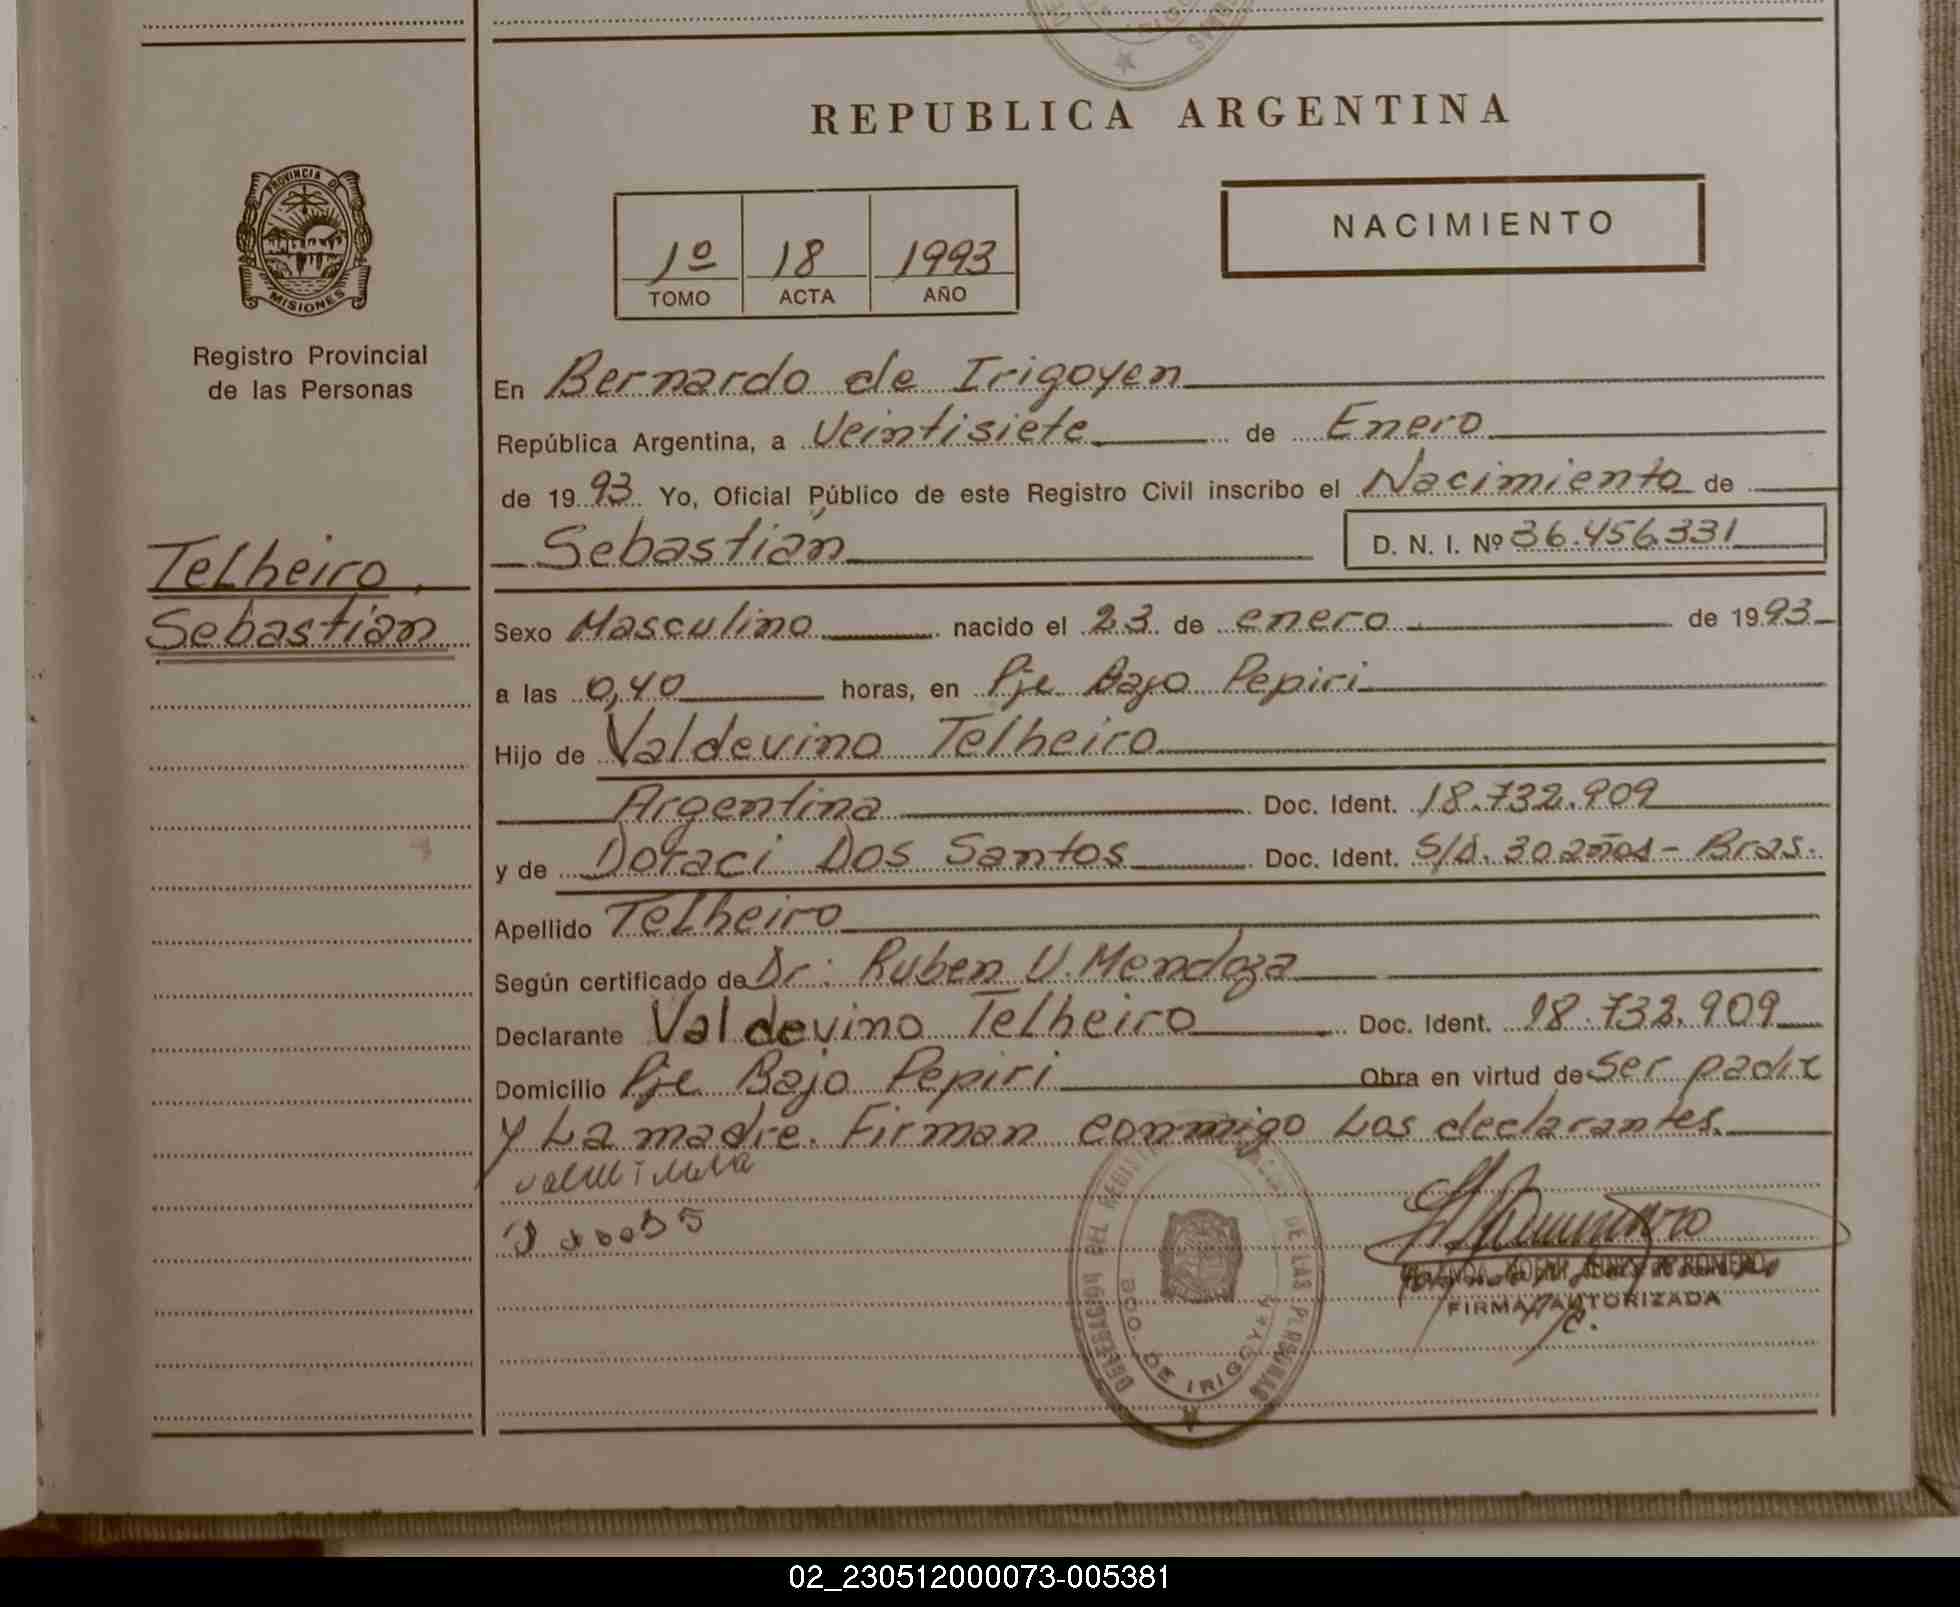 REPUBLICA ARGENTINA
PROVINCIA DE MISIONES
Registro Provincial
de las Personas
1º 18 1993
TOMO ACTA AÑO
NACIMIENTO
En Bernardo de Irigoyen
República Argentina, a Veintisiete de Enero
de 1993 Yo, Oficial Público de este Registro Civil inscribo el Nacimiento de
Sebastián D. N. I. Nº 36.456.331
Telheiro,
Sebastián
Sexo Masculino nacido el 23 de enero de 1993
a las 0,40 horas, en Pje Bajo Pepiri
Hijo de Valdevino Telheiro
Argentina Doc. Ident. 18.732.909
y de Doraci Dos Santos Doc. Ident. S/D. 30 años - Bras.
Apellido Telheiro
Según certificado de Dr: Ruben V. Mendoza
Declarante Valdevino Telheiro Doc. Ident. 18.732.909
Domicilio Pje Bajo Pepiri Obra en virtud de ser padre
y La madre. Firman conmigo Los declarantes.
DE LAS PERSONAS
BDO. DE IRIGOYEN
ROMERO
FIRMA AUTORIZADA
02_230512000073-005381